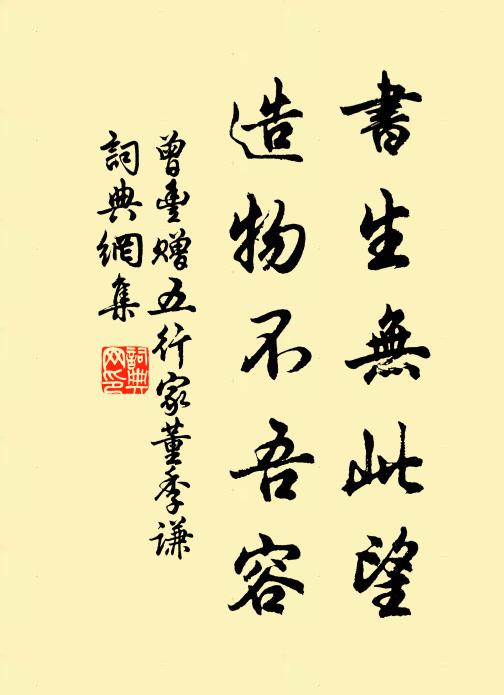 書生無此望
造物不吾容
曾豐贈五行家董季謙
詞典網集
詞典
网印